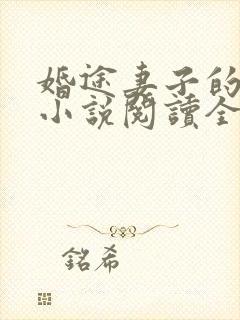 婚途妻子的
小說閱讀全
銘希